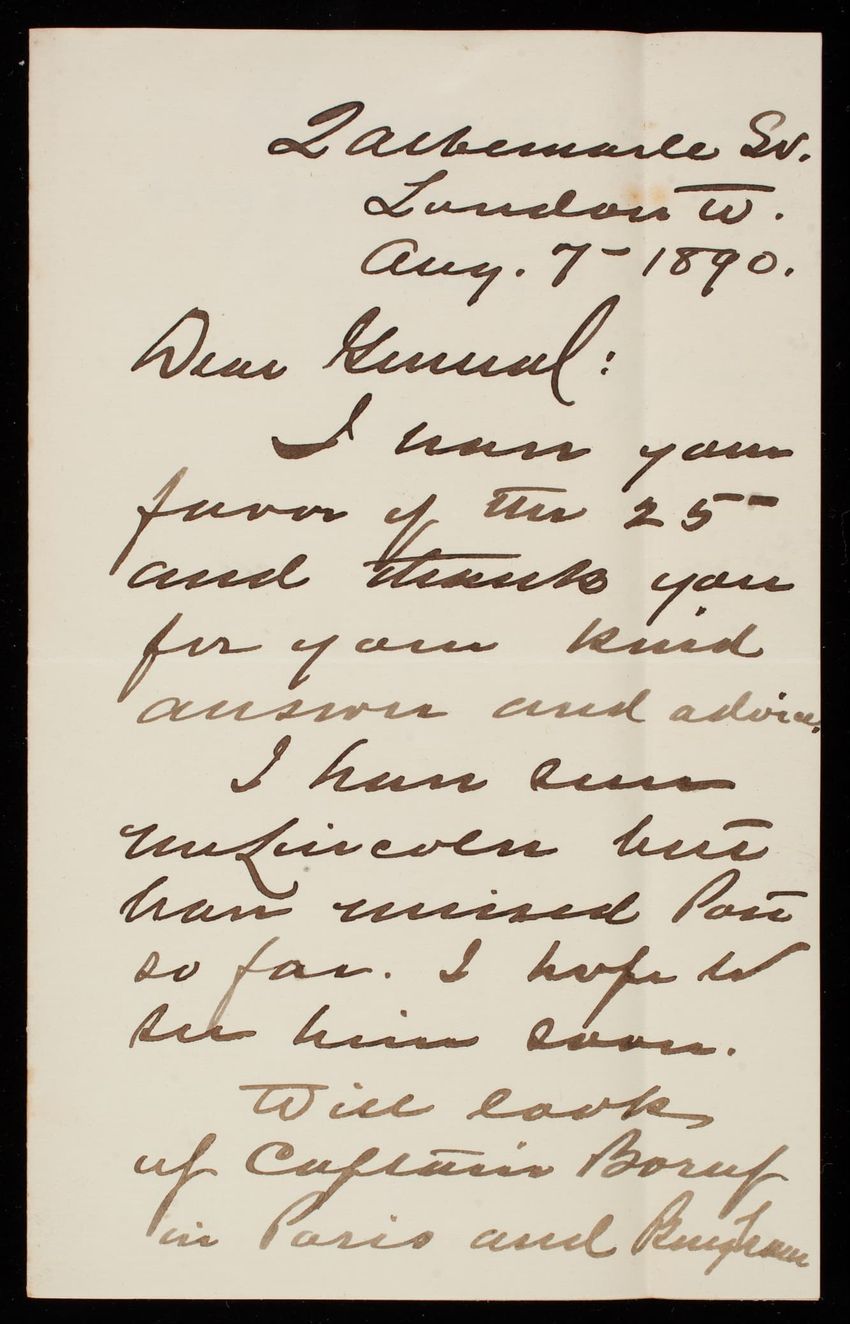 2 Albemarle St.
London W.
Aug. 7 - 1890.
Dear General:
I have your
favor of the 25 -
and thank you
for your kind
answer and advice.
I have seen
Mr Lincoln but
have missed Post
so far. I hope to
see him soon.
Will look
up Captain Borup
in Paris and Bingham